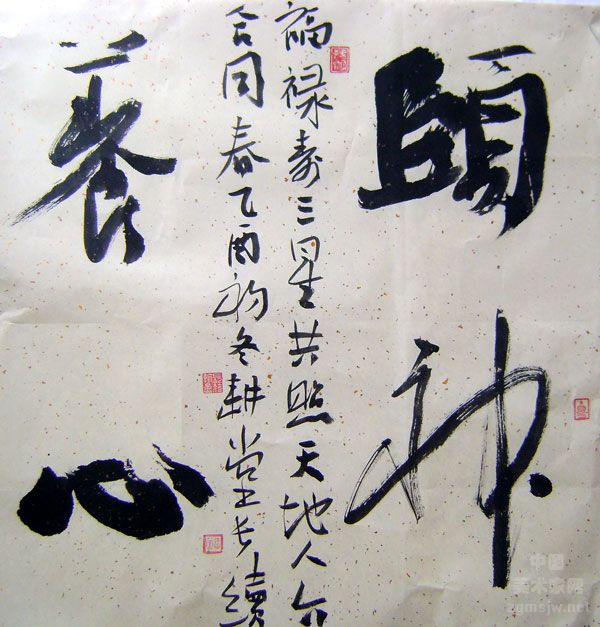 頤神
養心
福禄寿三星共照天地人六
合同春乙酉初冬耕堂長續
中国
美术家网
zgmsjw.net